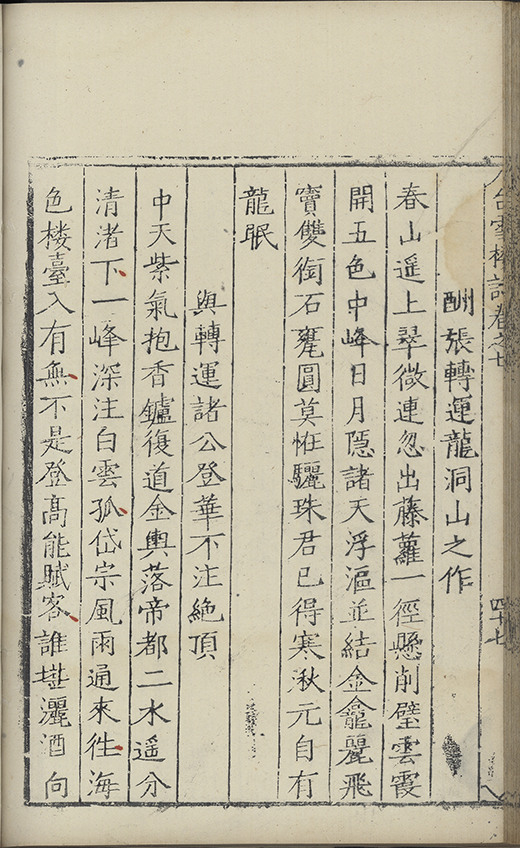 雪樓詩卷之七
四十七
酬張轉運龍洞山之作
春山遥上翠微連忽出藤蘿一徑懸削壁雲霞
開五色中峰日月隱諸天浮漚並結金龕麗飛
竇雙銜石甕圓莫恠驪珠君已得寒湫元自有
龍眠
與轉運諸公登華不注絶頂
中天紫氣抱香鑪復道金輿落帝都二水遥分
清渚下一峰深注白雲孤岱宗風雨通來徃海
色楼臺入有無不是登高能賦客誰堪灑酒向